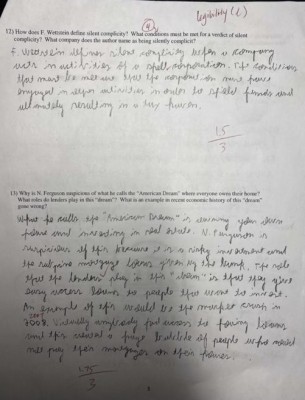 legibility (2)
4
12) How does F. Wettstein define silent complicity? What conditions must be met for a verdict of silent
complicity? What company does the author name as being silently complicit?
F. Wettstein defines silent complicity when a company
acts in activities of a shell corporation. The conditions
that must be met are that the corporation must have
engaged in certain activities in order to shield funds and
ultimately resulting in a tax haven.
1.5
3
13) Why is N. Ferguson suspicious of what he calls the "American Dream" where everyone owns their home?
What roles do lenders play in this "dream"? What is an example in recent economic history of this "dream"
gone wrong?
What he calls the "American Dream" is owning your own
home and investing in real estate. N. Ferguson is
suspicious of this because it is a risky investment and
the subprime mortgage loans given by the bank. The role
that the lenders play in this "dream" is that they give
easy access loans to people that want to invest.
An example of this would be the market crash in
2008. Virtually anybody had access to having loans
and this caused a huge bubble of people who could
not pay their mortgages on their houses.
1.5
3